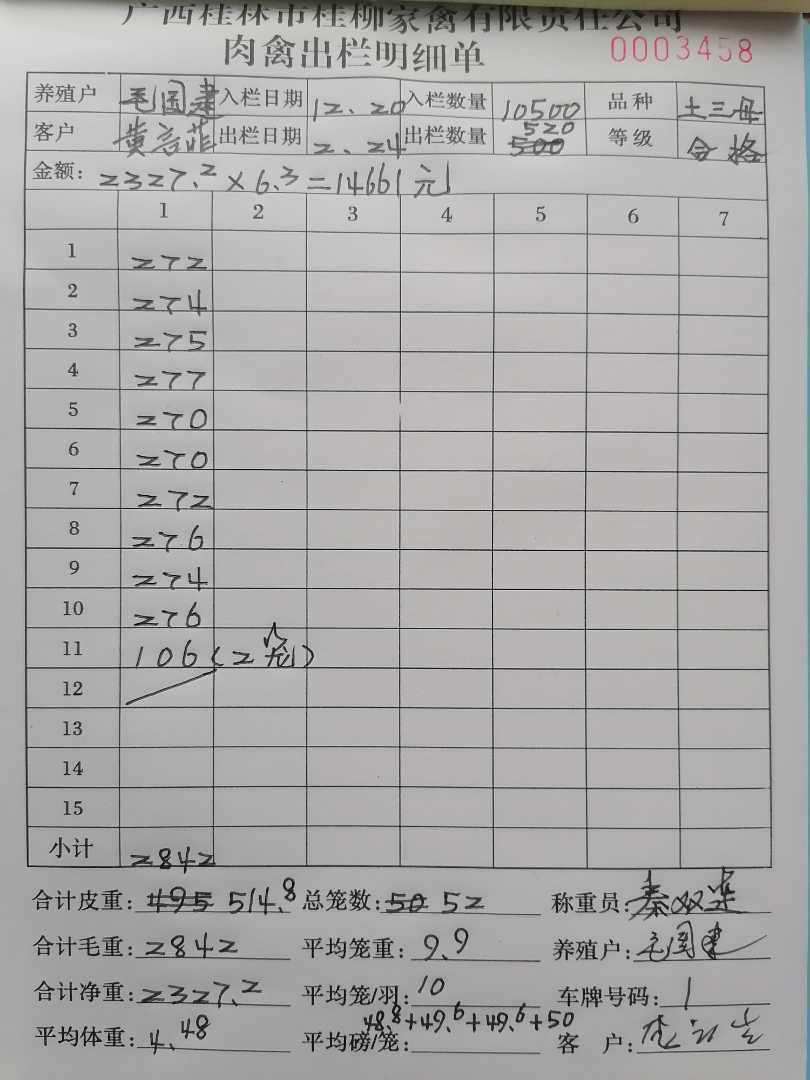 广西桂林市桂柳家禽有限责任公司
肉禽出栏明细单 0003458
养殖户 毛国建 入栏日期 12、20 入栏数量 10500 品种 土三毋
客户 出栏日期 2、24 出栏数量 520 500 等级 合格
金额: 2327.2 × 6.3 = 14661元
1 2 3 4 5 6 7
1 272
2 274
3 275
4 277
5 270
6 270
7 272
8 276
9 274
10 276
11 106(2笼)
12
13
14
15
小计 2842
合计皮重: 495 514.8 总笼数: 50 52 称重员: 秦双
合计毛重: 2842 平均笼重: 9.9 养殖户: 毛国建
合计净重: 2327.2 平均笼/羽: 10 车牌号码: 1
平均体重: 4.48 平均磅/笼: 48.8+49.6+49.6+50 客 户: